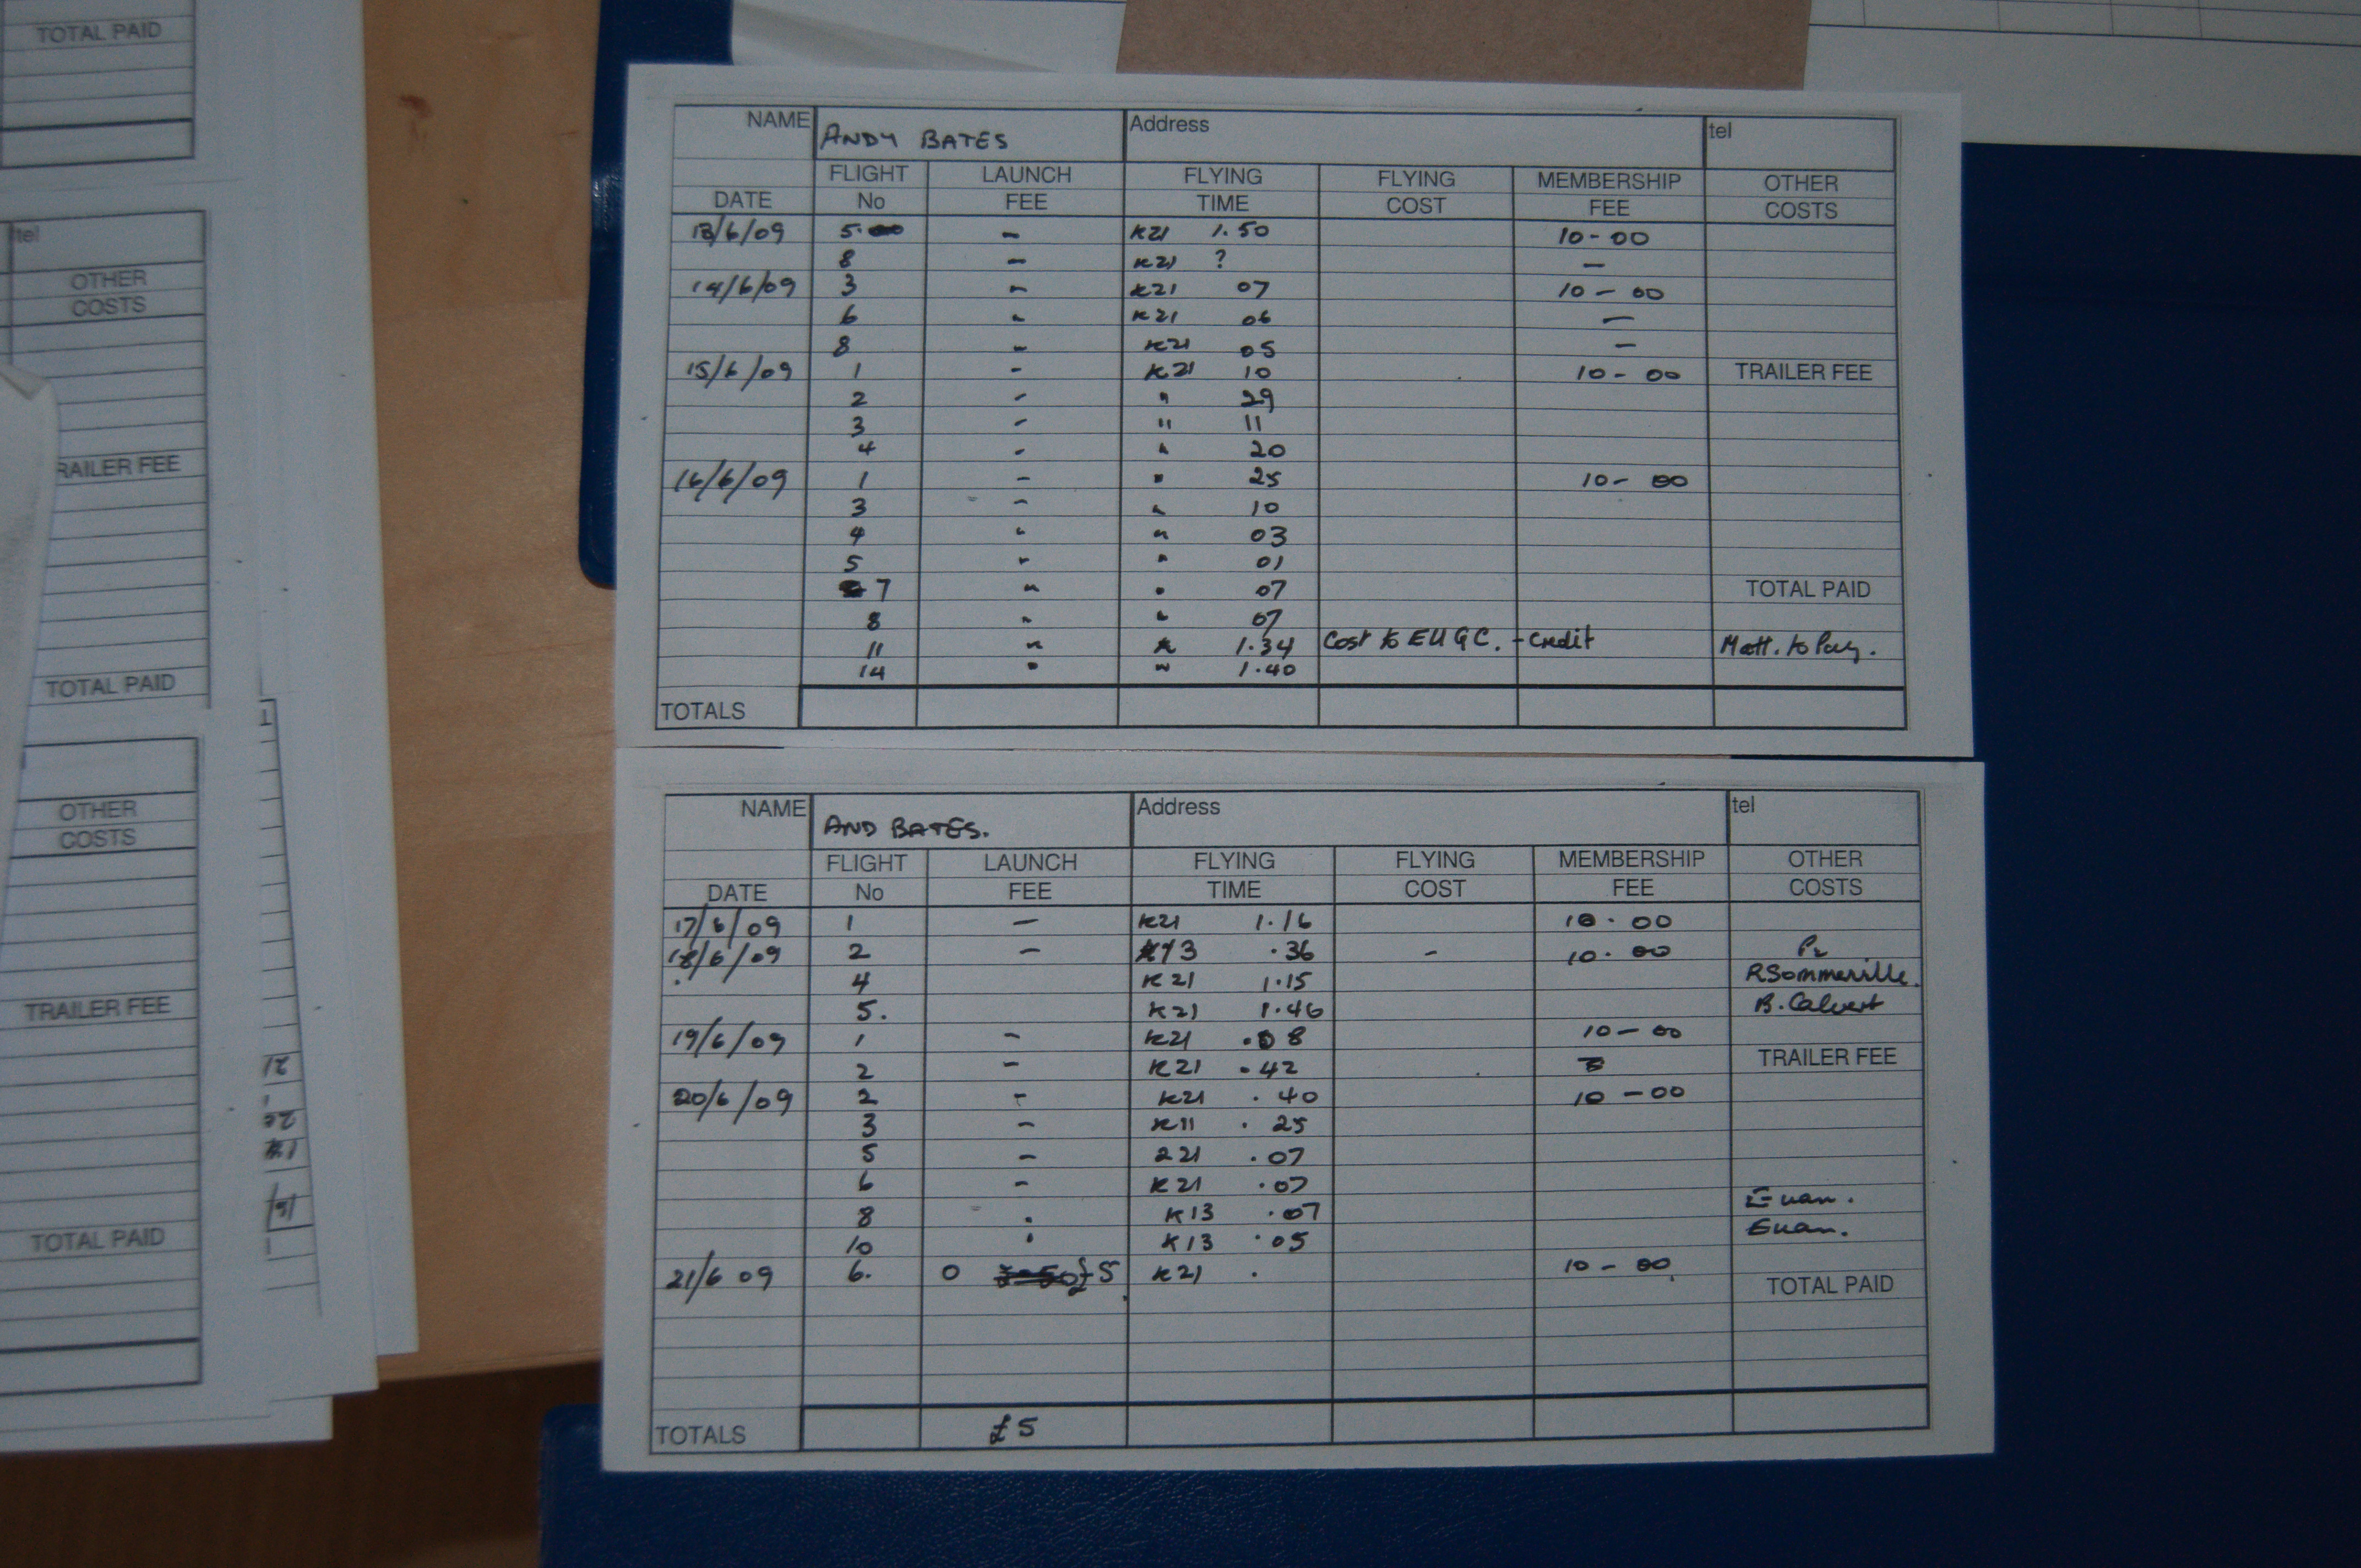 TOTAL PAID
tel
OTHER
COSTS
RAILER FEE
TOTAL PAID
OTHER
COSTS
TRAILER FEE
TOTAL PAID
NAME ANDY BATES Address tel
FLIGHT LAUNCH FLYING FLYING MEMBERSHIP OTHER
DATE No FEE TIME COST FEE COSTS
13/6/09 5. - K21 1.50 10-00
8 - K21 ? -
14/6/09 3 - K21 07 10-00
6 - K21 06 -
8 - K21 05 -
15/6/09 1 - K21 10 10-00 TRAILER FEE
2 - " 29
3 - " 11
4 - " 20
16/6/09 1 - " 25 10-00
3 - " 10
4 - " 03
5 - " 01
7 - " 07 TOTAL PAID
8 - " 07
11 - " 1.34 Cost to EUGC. - Credit Matt. to Pay.
14 - " 1.40
TOTALS
NAME AND BATES. Address tel
FLIGHT LAUNCH FLYING FLYING MEMBERSHIP OTHER
DATE No FEE TIME COST FEE COSTS
17/6/09 1 - K21 1.16 10.00
18/6/09 2 - K13 .36 - 10.00
4 K21 1.15 R Sommerville.
5. K21 1.46 B. Calvert
19/6/09 1 - K21 .08 10-00
2 - K21 .42 TRAILER FEE
20/6/09 2 - K21 .40 10-00
3 - K11 .25
5 - 221 .07
6 - K21 .07
8 K13 .07 Euan.
10 K13 .05 Euan.
21/6 09 6. 0 £5 K21 . 10-00
TOTAL PAID
TOTALS £5